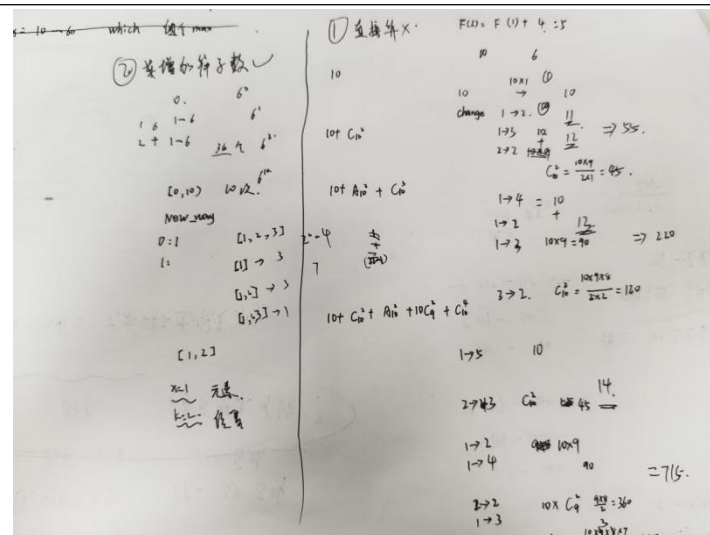 which
② 求增加筛子数 ✓
0. 6⁰
1 6 1-6 6¹
2 + 1-6 36个 6²
[0,10) 10次. 6¹⁰
New_way
0:1 [1,2,3] 4
1: [1] → 3 7
→ 3
→ 1
[1,2]
元素
位置
① 直接算 ×
10
10+ C₁₀²
10+ A₁₀² + C₁₀³
10+ C₁₀² + A₁₀² + 10C₉² + C₁₀⁴
F(2) = F(1) + 4 = 5
10 6
10×1 ①
10 → 10
change 1→2. ⑩ 11
1→3 10 12 ⇒ 55.
2→2 +
C₁₀² = 10×9/2×1 = 45.
1→4 = 10
1→2 + 13
1→3 10×9=90 ⇒ 220
3→2. C₁₀³ = 10×9×8/3×2 = 120
1→5 10
14.
C₁₀² 45
1→2 10×9
1→4 90 =715.
2→2 10× C₉² 9×8/2 =360
1→3
10×9×8×7